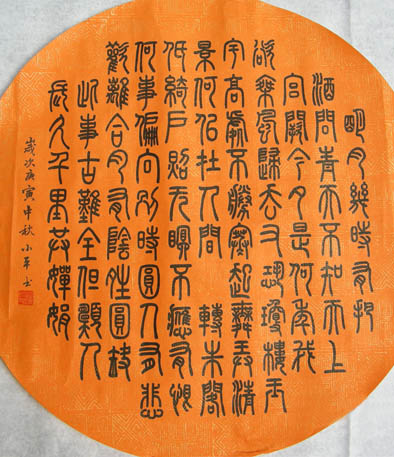 明月幾時有把
酒問青天不知天上
宮闕今夕是何年我
欲乘風歸去又恐瓊樓玉
宇高處不勝寒起舞弄清
景何似在人間 轉朱閣
低綺戶照無眠不應有恨
何事偏向別時圓人有悲
歡離合月有陰晴圓缺
此事古難全但願人
長久千里共嬋娟
歲次庚寅中秋小